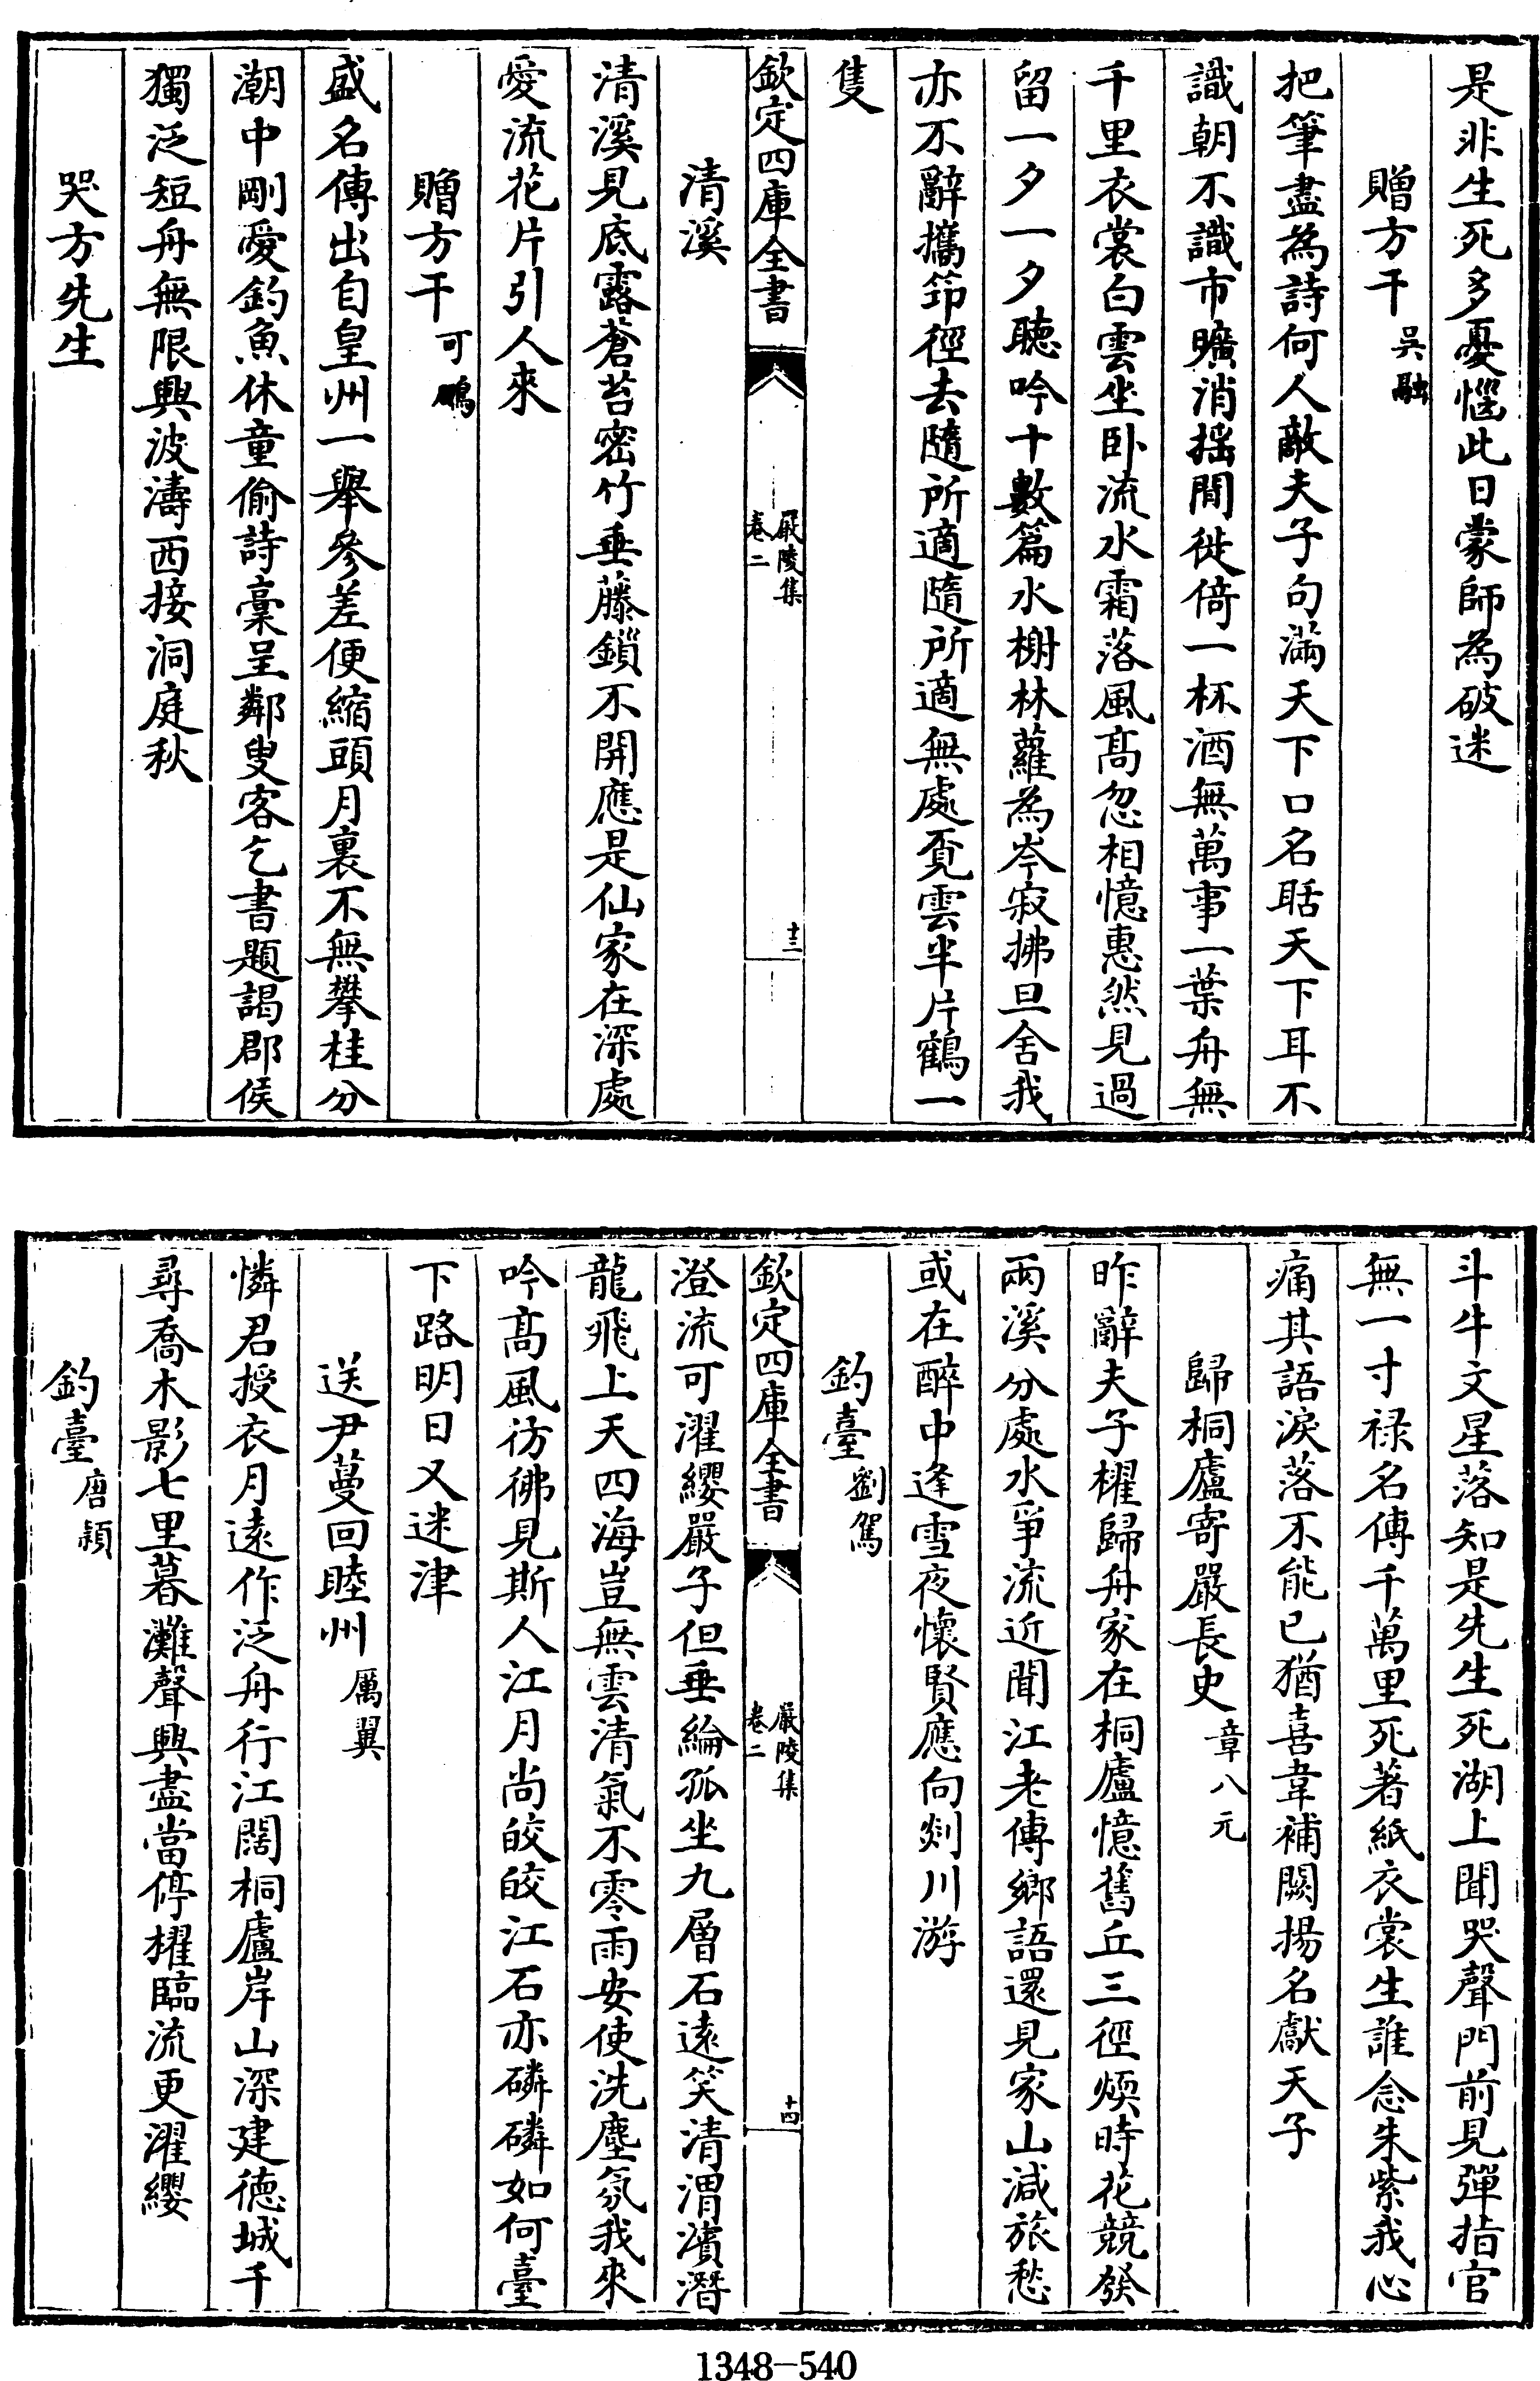 是非生死多憂惱此日蒙師為破迷
贈方干吳融
把筆盡為詩何人敵夫子句滿天下口名聒天下耳不
識朝不識市曠消揺閒徙倚一杯酒無萬事一葉舟無
千里衣裳白雲坐卧流水霜落風髙忽相憶惠然見過
留一夕一夕聽吟十數篇水榭林蘿為岑寂拂旦舍我
亦不辭攜筇徑去隨所適隨所適無處覓雲半片鶴一
隻
欽定四庫全書
嚴陵集
卷二
十三
清溪
清溪見底露蒼苔密竹垂藤鎖不開應是仙家在深處
愛流花片引人來
贈方干可鵬
盛名傳出自皇州一舉參差便縮頭月裏不無攀桂分
潮中剛愛釣魚休童偷詩稾呈鄰叟客乞書題謁郡侯
獨泛短舟無限興波濤西接洞庭秋
哭方先生
斗牛文星落知是先生死湖上聞哭聲門前見彈指官
無一寸禄名傳千萬里死著紙衣裳生誰念朱紫我心
痛其語淚落不能已猶喜韋補闕揚名獻天子
歸桐廬寄嚴長史章八元
昨辭夫子櫂歸舟家在桐廬憶舊丘三徑煗時花競發
兩溪分處水爭流近聞江老傳鄉語還見家山減旅愁
或在醉中逢雪夜懷賢應向剡川游
釣臺劉駕
欽定四庫全書
嚴陵集
卷二
十四
澄流可濯纓嚴子但垂綸孤坐九層石遠笑清渭濱潛
龍飛上天四海豈無雲清氣不零雨安使洗塵氛我來
吟髙風彷彿見斯人江月尚皎皎江石亦磷磷如何臺
下路明日又迷津
送尹蔓回睦州厲翼
憐君授衣月遠作泛舟行江闊桐廬岸山深建德城千
尋喬木影七里暮灘聲興盡當停櫂臨流更濯纓
釣臺唐穎
1348-540